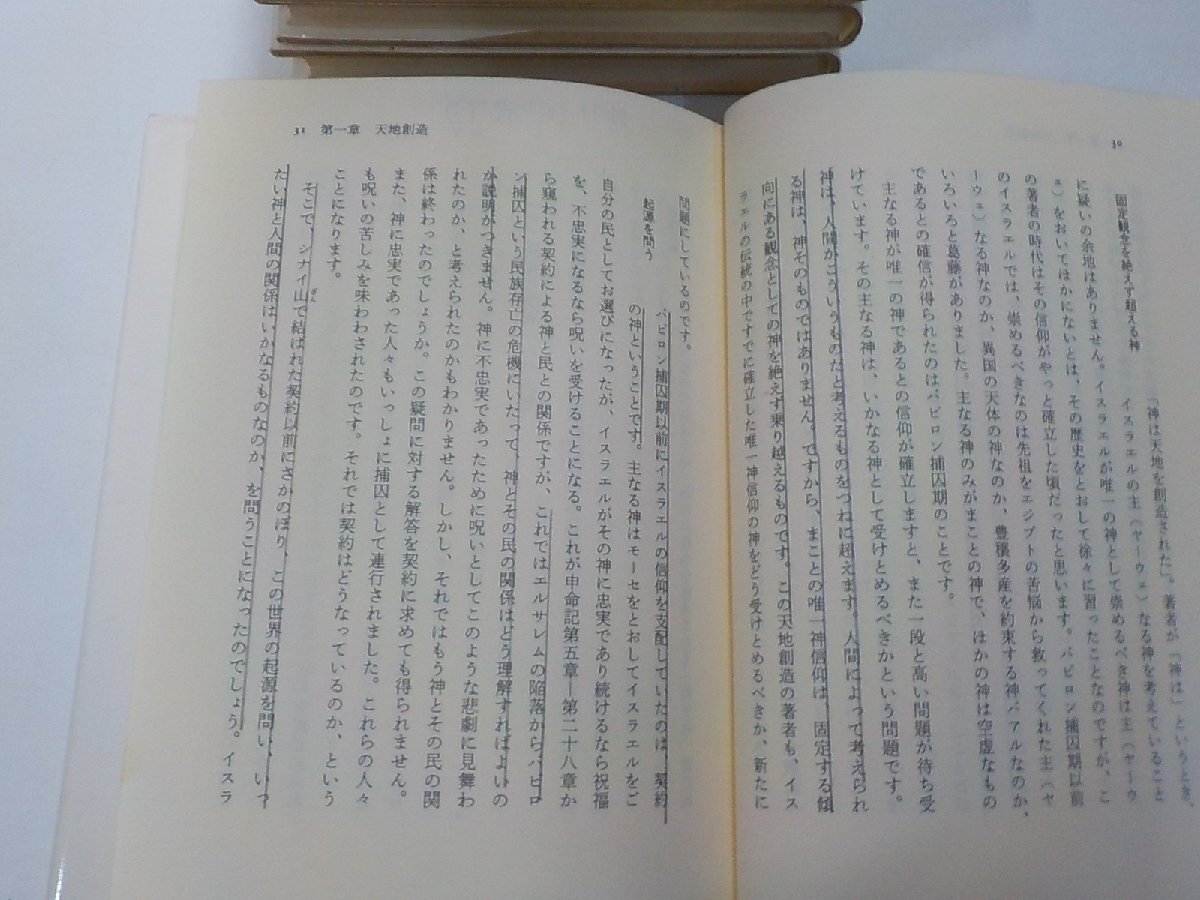 30
固定観念を絶えず超える神
「神は天地を創造された」。著者が「神は」というとき、
イスラエルの主（ヤーウェ）なる神を考えていること
に疑いの余地はありません。イスラエルが唯一の神として崇めるべき神は主（ヤーウ
ェ）をおいてほかにないとは、その歴史をとおして徐々に習ったことなのですが、こ
の著者の時代はその信仰がやっと確立した頃だったと思います。バビロン捕囚期以前
のイスラエルでは、崇めるべきなのは先祖をエジプトの苦悩から救ってくれた主（ヤ
ーウェ）なる神なのか、異国の天体の神なのか、豊穣多産を約束する神バアルなのか、
いろいろと葛藤がありました。主なる神のみがまことの神で、ほかの神は空虚なもの
であるとの確信が得られたのはバビロン捕囚期のことです。
主なる神が唯一の神であるとの信仰が確立しますと、また一段と高い問題が待ち受
けています。その主なる神は、いかなる神として受けとめるべきかという問題です。
神は、人間がこういうものだと考えるものをつねに超えます。人間によって考えられ
る神は、神そのものではありません。ですから、まことの唯一神信仰は、固定する傾
向にある観念としての神を絶えず乗り越えるものです。この天地創造の著者も、イス
ラエルの伝統の中ですでに確立した唯一神信仰の神をどう受けとめるべきか、新たに
31 第一章 天地創造
問題にしているのです。
起源を問う
バビロン捕囚期以前にイスラエルの信仰を支配していたのは、契約
の神ということです。主なる神はモーセをとおしてイスラエルをご
自分の民としてお選びになったが、イスラエルがその神に忠実であり続けるなら祝福
を、不忠実になるなら呪いを受けることになる。これが申命記第五章―第二十八章か
ら窺われる契約による神と民との関係ですが、これではエルサレムの陥落からバビロ
ン捕囚という民族存亡の危機にいたって、神とその民の関係はどう理解すればよいの
か説明がつきません。神に不忠実であったために呪いとしてこのような悲劇に見舞わ
れたのか、と考えられたのかもわかりません。しかし、それではもう神とその民の関
係は終わったのでしょうか。この疑問に対する解答を契約に求めても得られません。
また、神に忠実であった人々もいっしょに捕囚として連行されました。これらの人々
も呪いの苦しみを味わわされたのです。それでは契約はどうなっているのか、という
ことになります。
そこで、シナイ山で結ばれた契約以前にさかのぼり、この世界の起源を問い、いっ
たい神と人間の関係はいかなるものなのか、を問うことになったのでしょう。イスラ